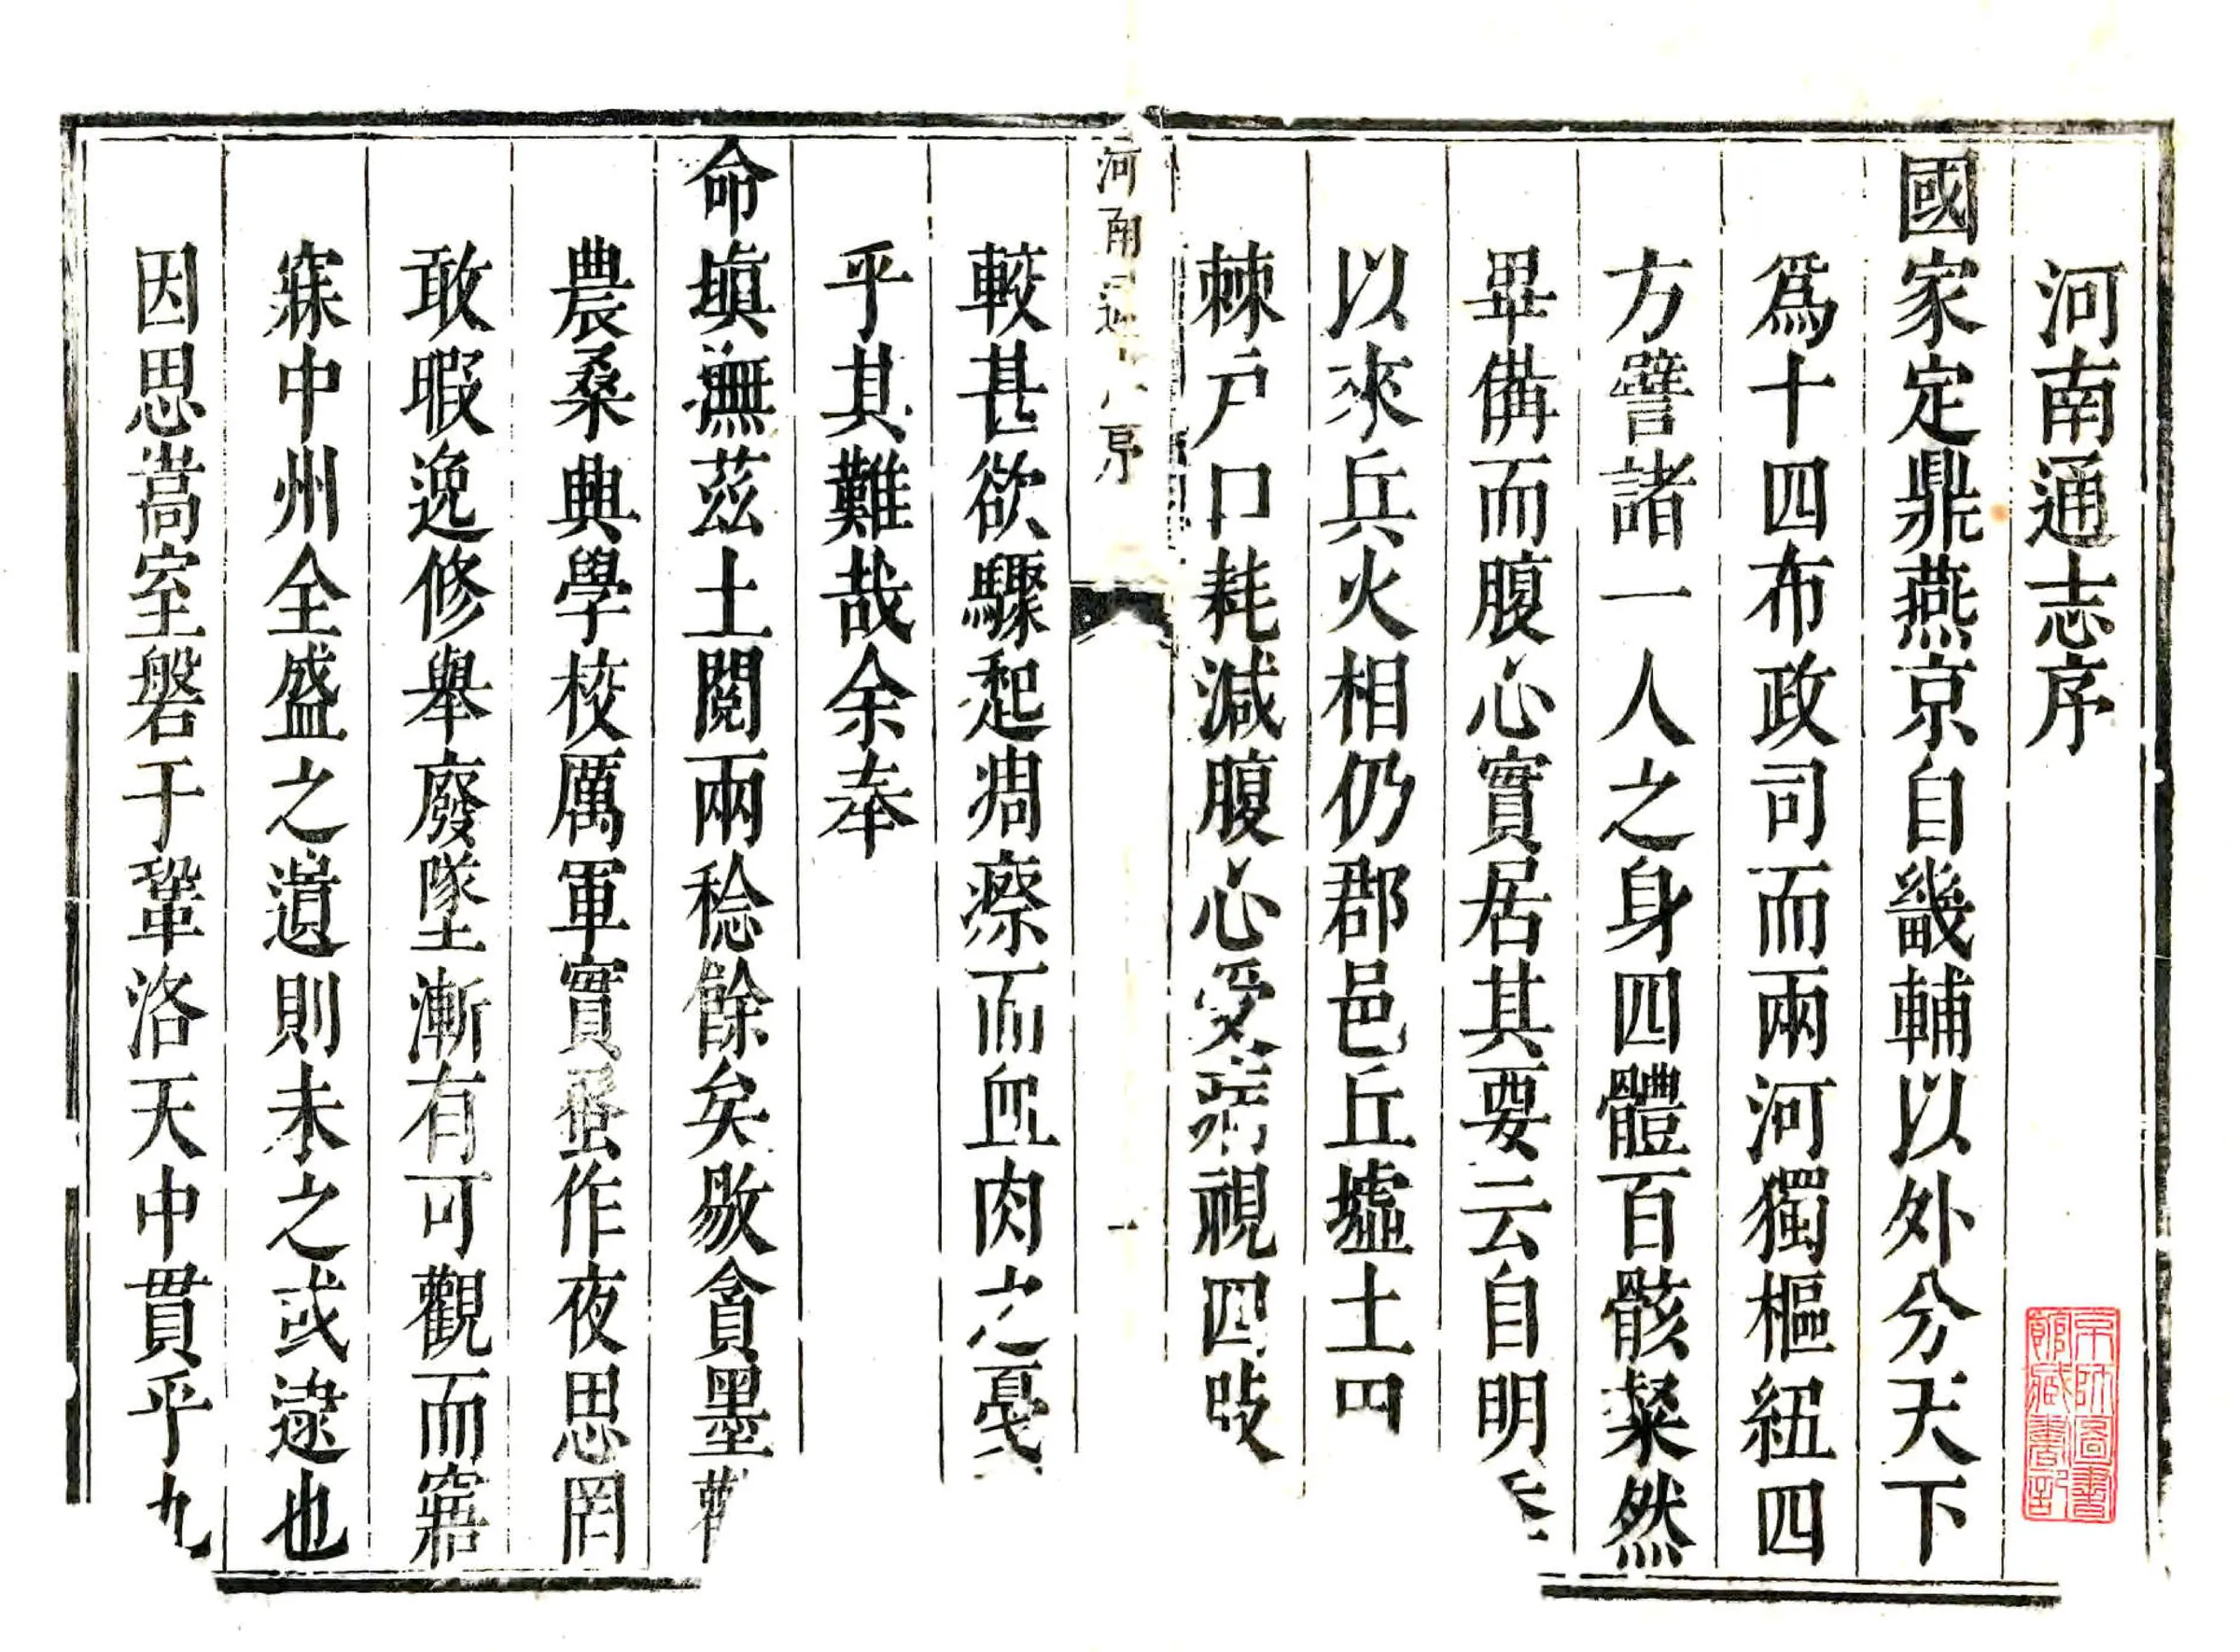 河南通志序
國家定鼎燕京自畿輔以外分天下
爲十四布政司而兩河獨樞紐四
方譬諸一人之身四體百骸粲然
畢備而腹心實居其要云自明季
以來兵火相仍郡邑丘墟土田
棘戶口耗減腹心受病視四肢
較甚欲驟起痌瘵而血肉之憂憂
乎其難哉余奉
命塡撫茲土閱兩稔餘矣敭貪墨
農桑興學校厲軍實蚤作夜思罔
敢暇逸修舉廢墜漸有可觀而寤
寐中州全盛之遺則未之或逮也
因思嵩室磐于鞏洛天中貫乎九
河南通志序
一
京師圖書
館藏書記